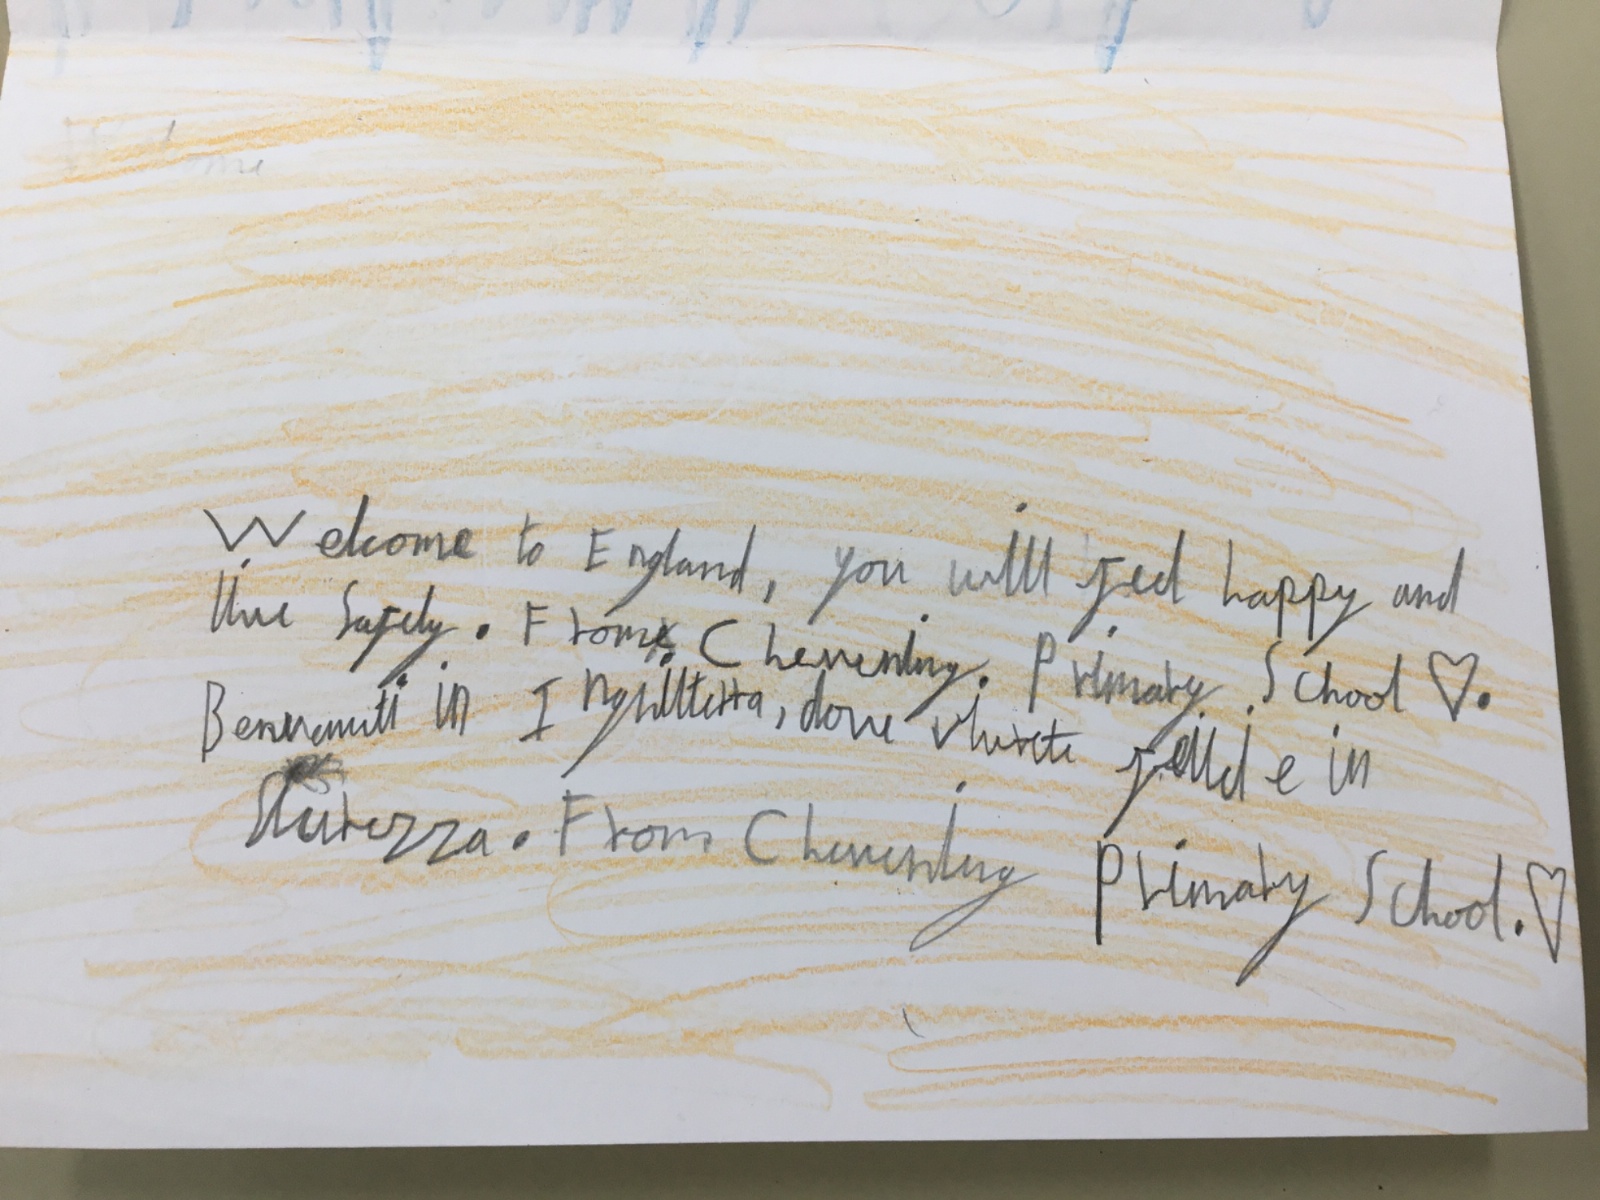 Welcome to England, you willl feel happy and
live safely. From Chevening. Primary School ♡.
Benvenuti in Inghillterra, dove vivrete felici e in
Sicurezza. From Chevening Primary School. ♡